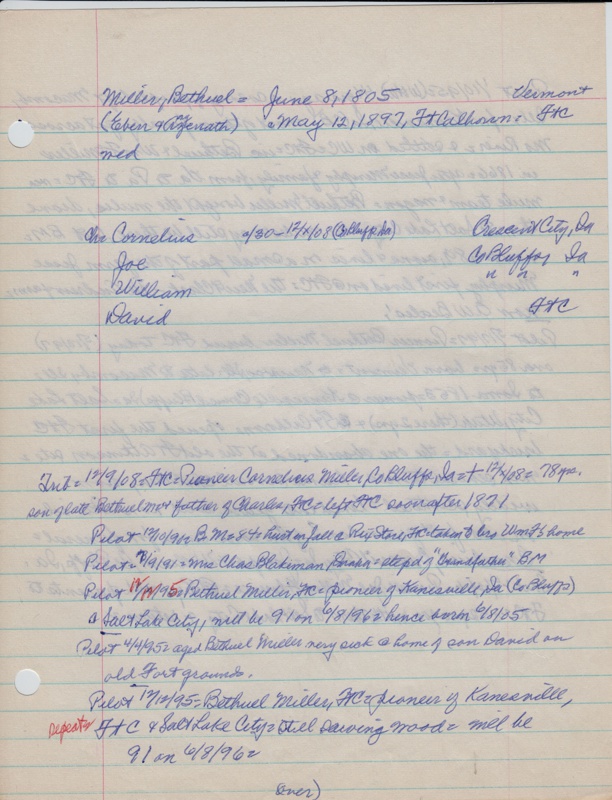 Miller, Bethuel = June 8, 1805 Vermont
(Eben & Azenath) = May 12, 1897, Ft Calhoun = FtC
wed
Ch= Cornelius /30 - 12/ /08 (Co Bluffs, Ia) Crescent City, Ia
Joe Co Bluffs, Ia
William " " "
David FtC
Trib = 12/9/08 = FtC = Pioneer Cornelius Miller, Co Bluffs, Ia = + 12/4/08 = 78 yrs.
son of late Bethuel M & father of Charles, FtC = left FtC soon after 1871
Pilot B M = 84 = hurt in fall @ Store, FtC = taken to bro Wm F's home
Pilot = /9/91 = Mrs Chas Blakeman, = of "Grandfather" BM
Pilot 12/12/95 = Bethuel Miller, FtC = pioneer of Kanesville, Ia (Co Bluffs)
& Salt Lake City, will be 91 on 6/8/96 = hence born 6/8/05
Pilot 4/4/95 = aged Bethuel Miller very sick @ home of son David on
old Fort grounds.
Pilot 12/12/95 = Bethuel Miller, FtC = pioneer of Kanesville,
repeat FtC & Salt Lake City = still sawing wood = will be
91 on 6/8/96 =
over)